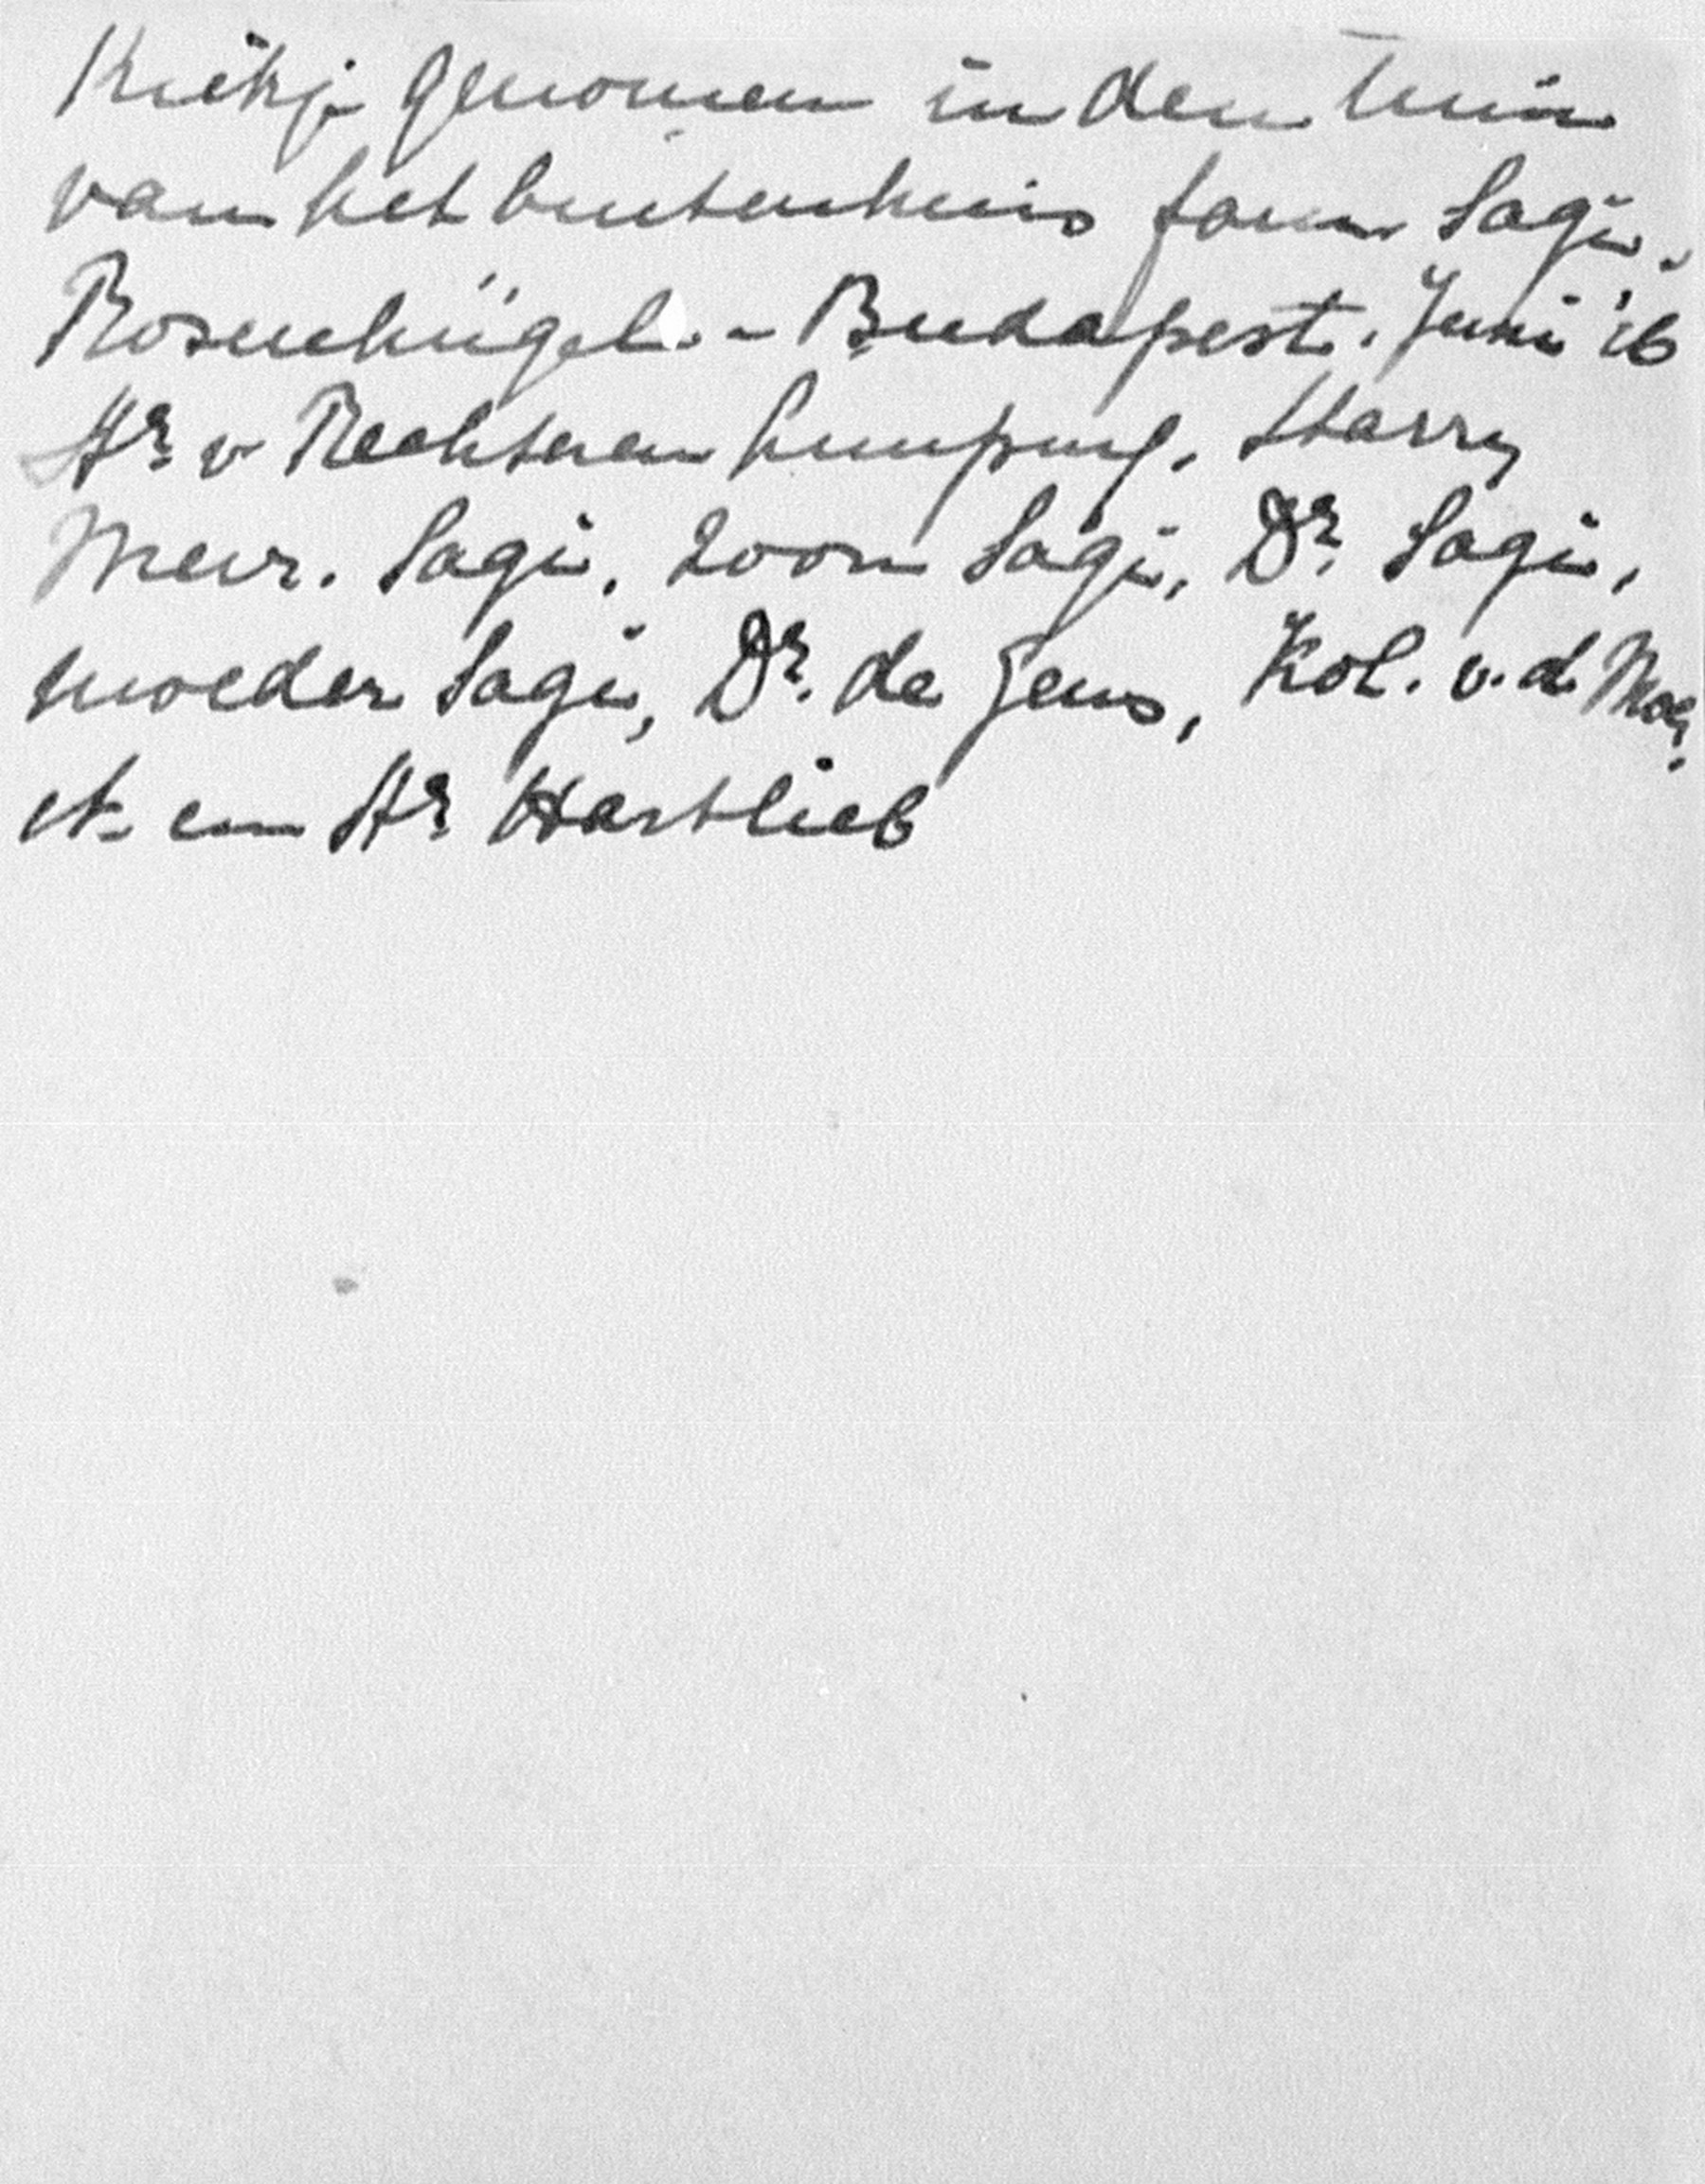 Kiekje genomen in den Tuin
van het buitenhuis fam Sagi.
Rosenhügel - Budapest. Juni '16
Hr v Rechteren Limpurg. Harry
Mevr. Sagi. Zoon Sagi, Dr. Sagi,
moeder Sagi, Dr. de Gens, Kol. v. d. Moer
ik en Hr Hartlieb